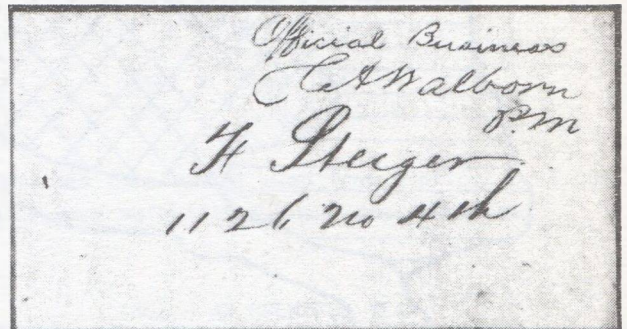 Official Business
C A Walborn
P.M
F Steiger
1126 No 4th